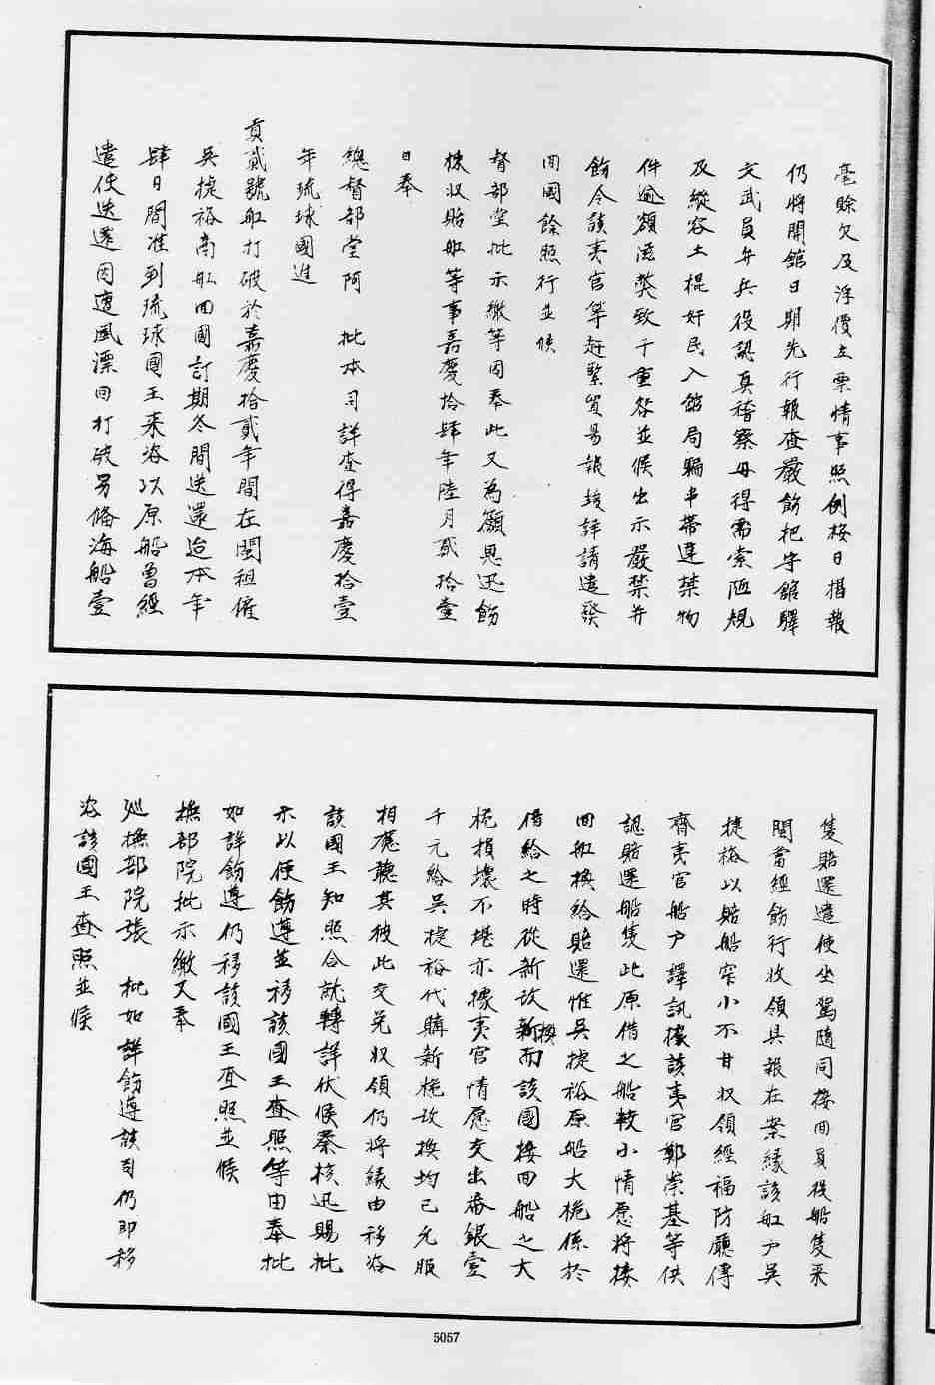 毫賒欠及浮價立票情事照例按日摺報
仍將開館日期先行報查嚴飭把守館驛
文武員弁兵役認真稽察毋得需索陋規
及縱容土棍奸民入館局騙串帶違禁物
件逾額滋獘致干重咎並候出示嚴禁并
飭令該夷官等赶緊貿易報竣詳請遣發
回國餘照行並候
督部堂批示繳等因奉此又為籲恩迅飭
検収賠船等事嘉慶拾肆年陸月貳拾壹
日奉
總督部堂阿 批本司詳查得嘉慶拾壹
年琉球國進
貢貳號船打破於嘉慶拾貳年間在閩租僱
吳捷裕商船回國訂期冬間送還迨本年
肆日間准到琉球國王来咨以原船曾經
遣使送還因遭風漂回打破另備海船壹
隻賠還遣使坐駕隨同接回員役船隻来
閩當經飭行收領具報在案緣該船户吳
捷裕以賠船窄小不甘収領經福防廳傳
齊夷官船户譯訊據該夷官鄭崇基等供
認賠還船隻比原借之船較小情愿將接
回船換給賠還惟吳捷裕原船大桅係於
借給之時從新改換而該國接回船之大
桅損壞不堪亦據夷官情愿交出番銀壹
千元給吳捷裕代購新桅改換均已允服
相應聽其彼此交兑収領仍將緣由移咨
該國王知照合就轉詳伏候察核迅賜批
示以便飭遵並移該國王查照等由奉批
如詳飭遵仍移該國王查照並候
撫部院批示繳又奉
廵撫部院張 批如詳飭遵該司仍即移
咨該國王查照並候
5057